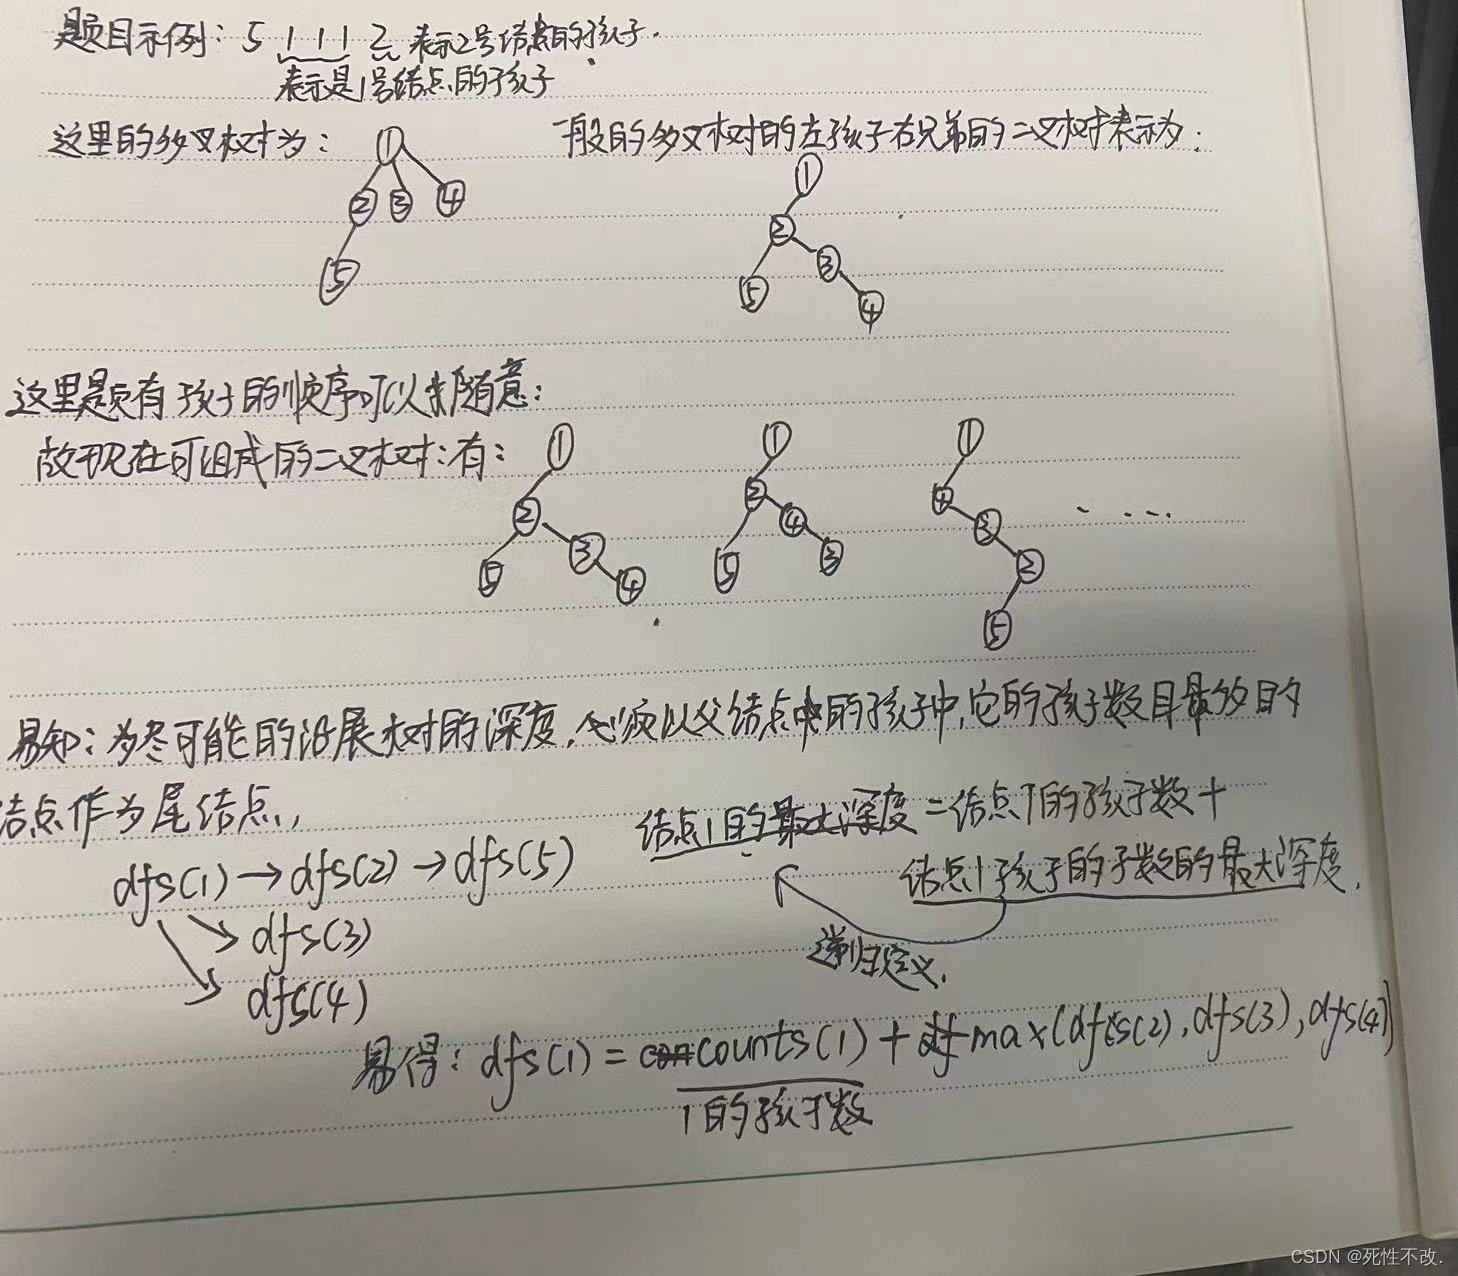 题目示例：5 1 1 1 2 表示2号结点的孩子.
表示是1号结点的孩子
这里的多叉树为：
一般的多叉树的左孩子右兄弟的二叉树表示为：
1
2 3 4
5
1
2
5 3
4
这里题有孩子的顺序可以随意：
故现在可组成的二叉树：有：
1
2
5 3
4
1
2
5 4
3
1
4
3
2
5
....
易知：为尽可能的沿展树的深度，必须以父结点的孩子中，它的孩子数目最多的
结点作为尾结点，
结点1的最大深度 = 结点1的孩子数 +
结点1孩子的子数的最大深度.
递归定义.
dfs(1) → dfs(2) → dfs(5)
dfs(3)
dfs(4)
易得：dfs(1) = counts(1) + max(dfs(2), dfs(3), dfs(4))
1的孩子数
CSDN @死性不改.